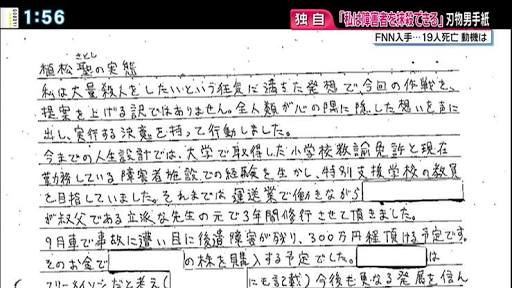 1:56
独自
「私は障害者を抹殺できる」刃物男手紙
FNN入手…19人死亡 動機は
さとし
植松聖の実態
私は大量殺人をしたいという狂気に満ちた発想で、今回の作戦を、
提案を上げる訳ではありません。全人類が心の隅に隠した想いを声に
出し、実行する決意を持って行動しました。
今までの人生設計では、大学で取得した小学校教諭免許と現在
勤務している障害者施設での経験を生かし、特別支援学校の教員
を目指していました。それまでは運送業で働きながら
が叔父である立派な先生の元で3年間修行させて頂きました。
9月車で事故に遭い目に後遺障害が残り、300万円程頂ける予定です。
そのお金で の株を購入する予定でした。 は
フリーメイソンだと考え( にも記載)今後も更なる発展を信ん